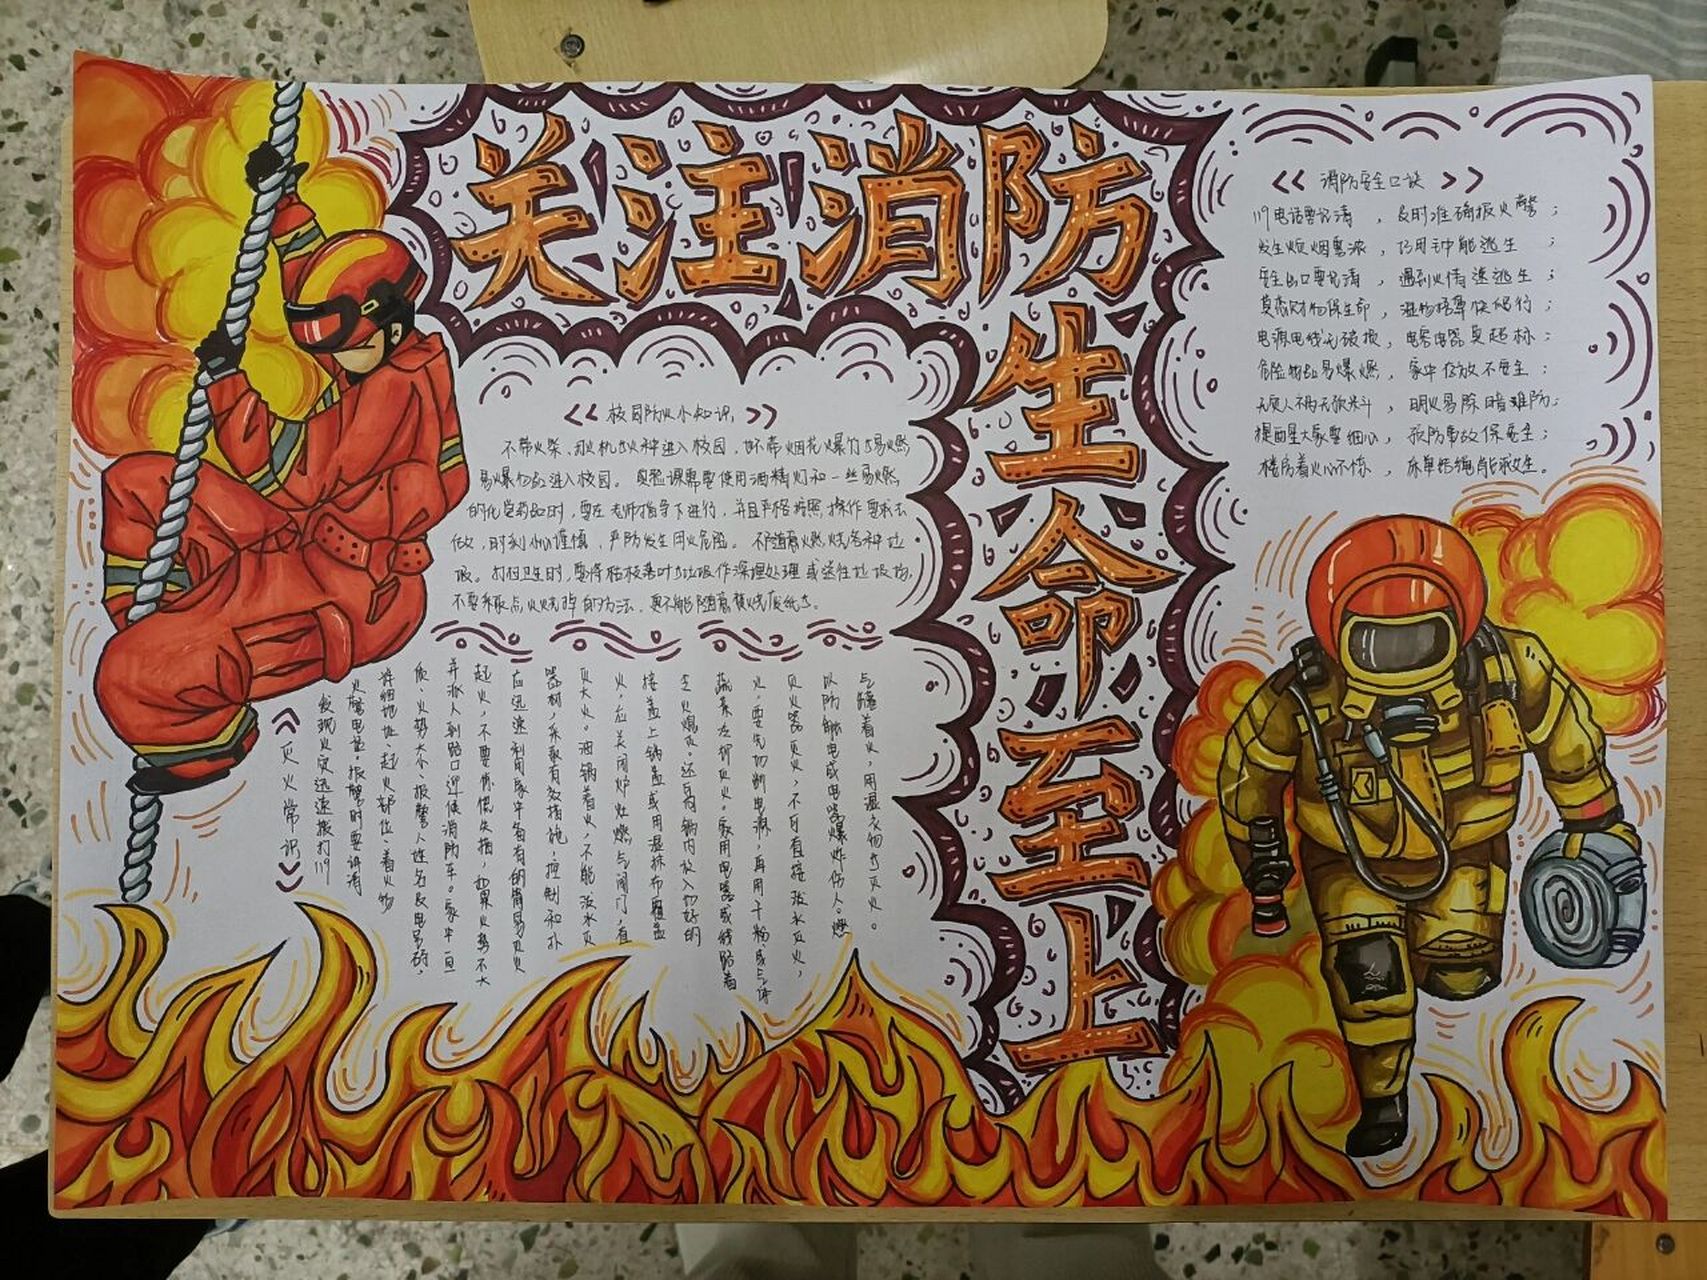 关注消防
生命至上
《 消防安全口诀 》
119电话要记清，及时准确报火警；
发生火炬烟雾浓，巧用毛巾能逃生；
安全出口要记清，遇到火情速逃生；
莫恋财物保生命，湿物捂鼻快爬行；
电源电线无破损，电容电器莫超标；
危险物品易爆燃，家中存放不安全；
无原人不两无依斗，明火易除暗难防；
提醒大家要细心，预防事故保安全；
楼房着火心不惊，床单结绳能救生。
《 校园防火小知识 》
不带火柴、打火机等火种进入校园，也不带烟花爆竹等易燃
易爆物品进入校园。实验课需要使用酒精灯和一些易燃
的化学药品时，要在老师指导下进行，并且严格按照操作要求去
做，时刻小心谨慎，严防发生用火危险。不随意燃烧各种垃
圾。打扫卫生时，要将枯枝落叶等垃圾作深埋处理或送往垃圾场，
不要采取点火烧掉的方法，更不能随意焚烧废纸等。
《 灭火常识 》
发现火灾迅速拨打119
火警电话。报警时要讲清
详细地址、起火部位、着火物
质、火势大小、报警人姓名及电话号码，
并派人到路口迎候消防车。家中一旦
起火，不要惊慌失措，如果火势不大
应迅速利用家中备有的简易灭火
器材，采取有效措施，控制和扑
灭大火。油锅着火，不能泼水灭
火，应关闭炉灶燃气阀门，直
接盖上锅盖或用湿抹布覆盖
令火熄灭。还可向锅内放入切好的
蔬菜冷却灭火。家用电器或线路着
火，要先切断电源，再用干粉或气体
灭火器灭火，不可直接泼水灭火，
以防触电或电器爆炸伤人。燃
气罐着火，用湿衣物等灭火。